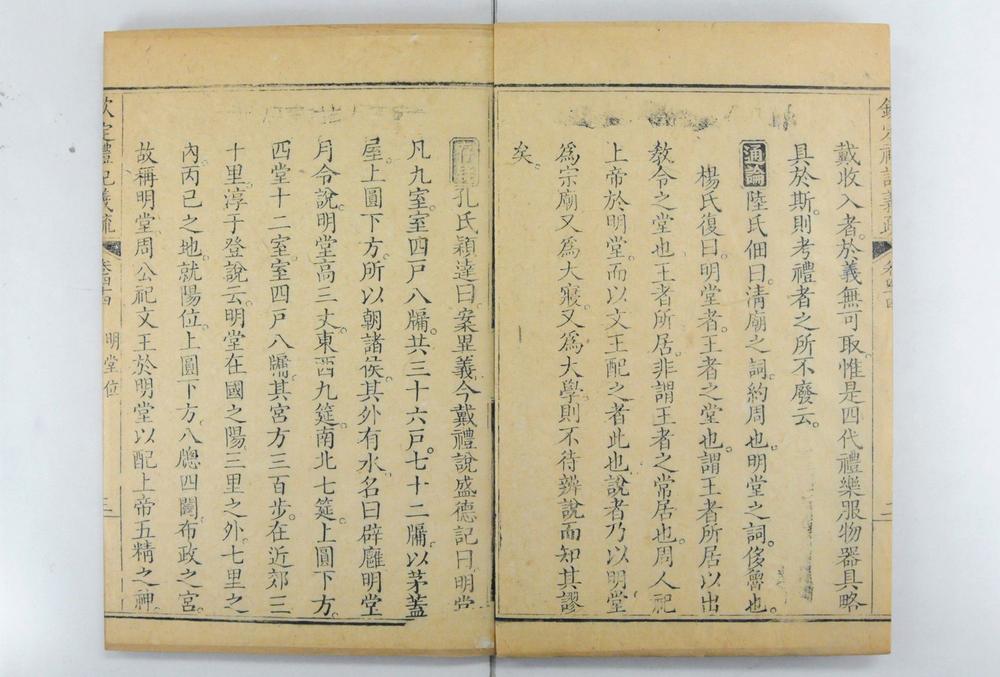 欽定禮記義疏 卷四十四 二
戴收入者。於義無可取。惟是四代禮樂服物器具略
具於斯。則考禮者之所不廢云。
通論 陸氏佃曰。淸廟之詞。約周也。明堂之詞。侈魯也。
楊氏復曰。明堂者。王者之堂也。謂王者所居以出
敎令之堂也。王者所居。非謂王者之常居也。周人祀
上帝於明堂。而以文王配之者此也。說者乃以明堂
爲宗廟。又爲大寢。又爲大學。則不待辨說而知其謬
矣。
孔氏穎達曰。案異義今戴禮說盛德記曰。明堂
凡九室。室四戶八牖。共三十六戶。七十二牖。以茅蓋
屋。上圓下方。所以朝諸侯。其外有水。名曰辟廱。明堂
月令說明堂高三丈。東西九筵。南北七筵。上圓下方。
四堂十二室。室四戶八牖。其宮方三百步。在近郊三
十里。淳于登說云。明堂在國之陽。三里之外。七里之
內。丙巳之地。就陽位。上圓下方。八牕四闥。布政之宮。
故稱明堂。周公祀文王於明堂。以配上帝五精之神。
欽定禮記義疏 卷四十四 明堂位 三